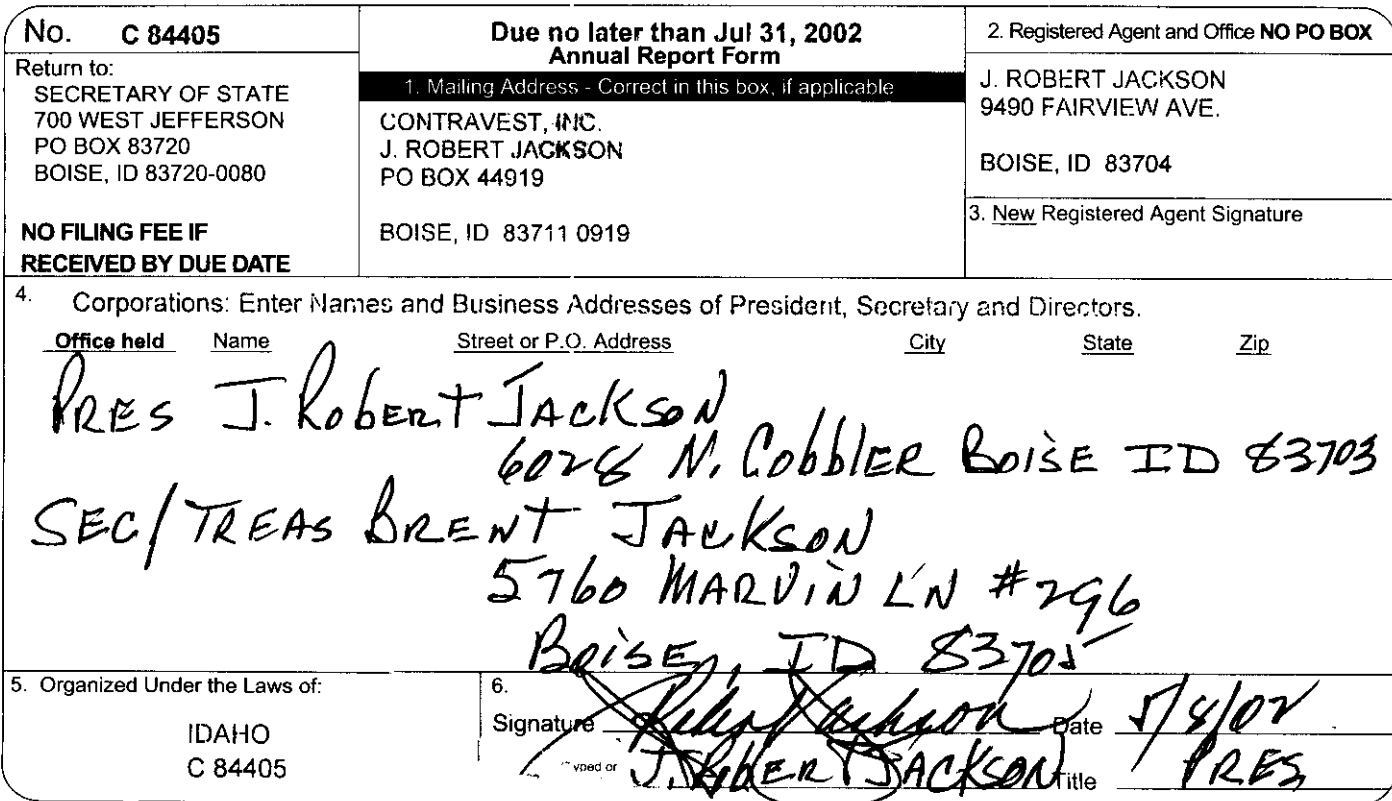 No. C 84405
Return to:
SECRETARY OF STATE
700 WEST JEFFERSON
PO BOX 83720
BOISE, ID 83720-0080
NO FILING FEE IF
RECEIVED BY DUE DATE
Due no later than Jul 31, 2002
Annual Report Form
1. Mailing Address - Correct in this box, if applicable
CONTRAVEST, INC.
J. ROBERT JACKSON
PO BOX 44919
BOISE, ID 83711 0919
2. Registered Agent and Office NO PO BOX
J. ROBERT JACKSON
9490 FAIRVIEW AVE.
BOISE, ID 83704
3. New Registered Agent Signature
4. Corporations: Enter Names and Business Addresses of President, Secretary and Directors.
Office held Name Street or P.O. Address City State Zip
PRES J. Robert Jackson
6028 N. Cobbler Boise ID 83703
SEC/TREAS BRENT JACKSON
5760 MARVIN LN #296
BOISE, ID 83705
5. Organized Under the Laws of:
IDAHO
C 84405
6.
Signature Jackson Date 5/8/02
yped or J. Robert JACKSON Title PRES